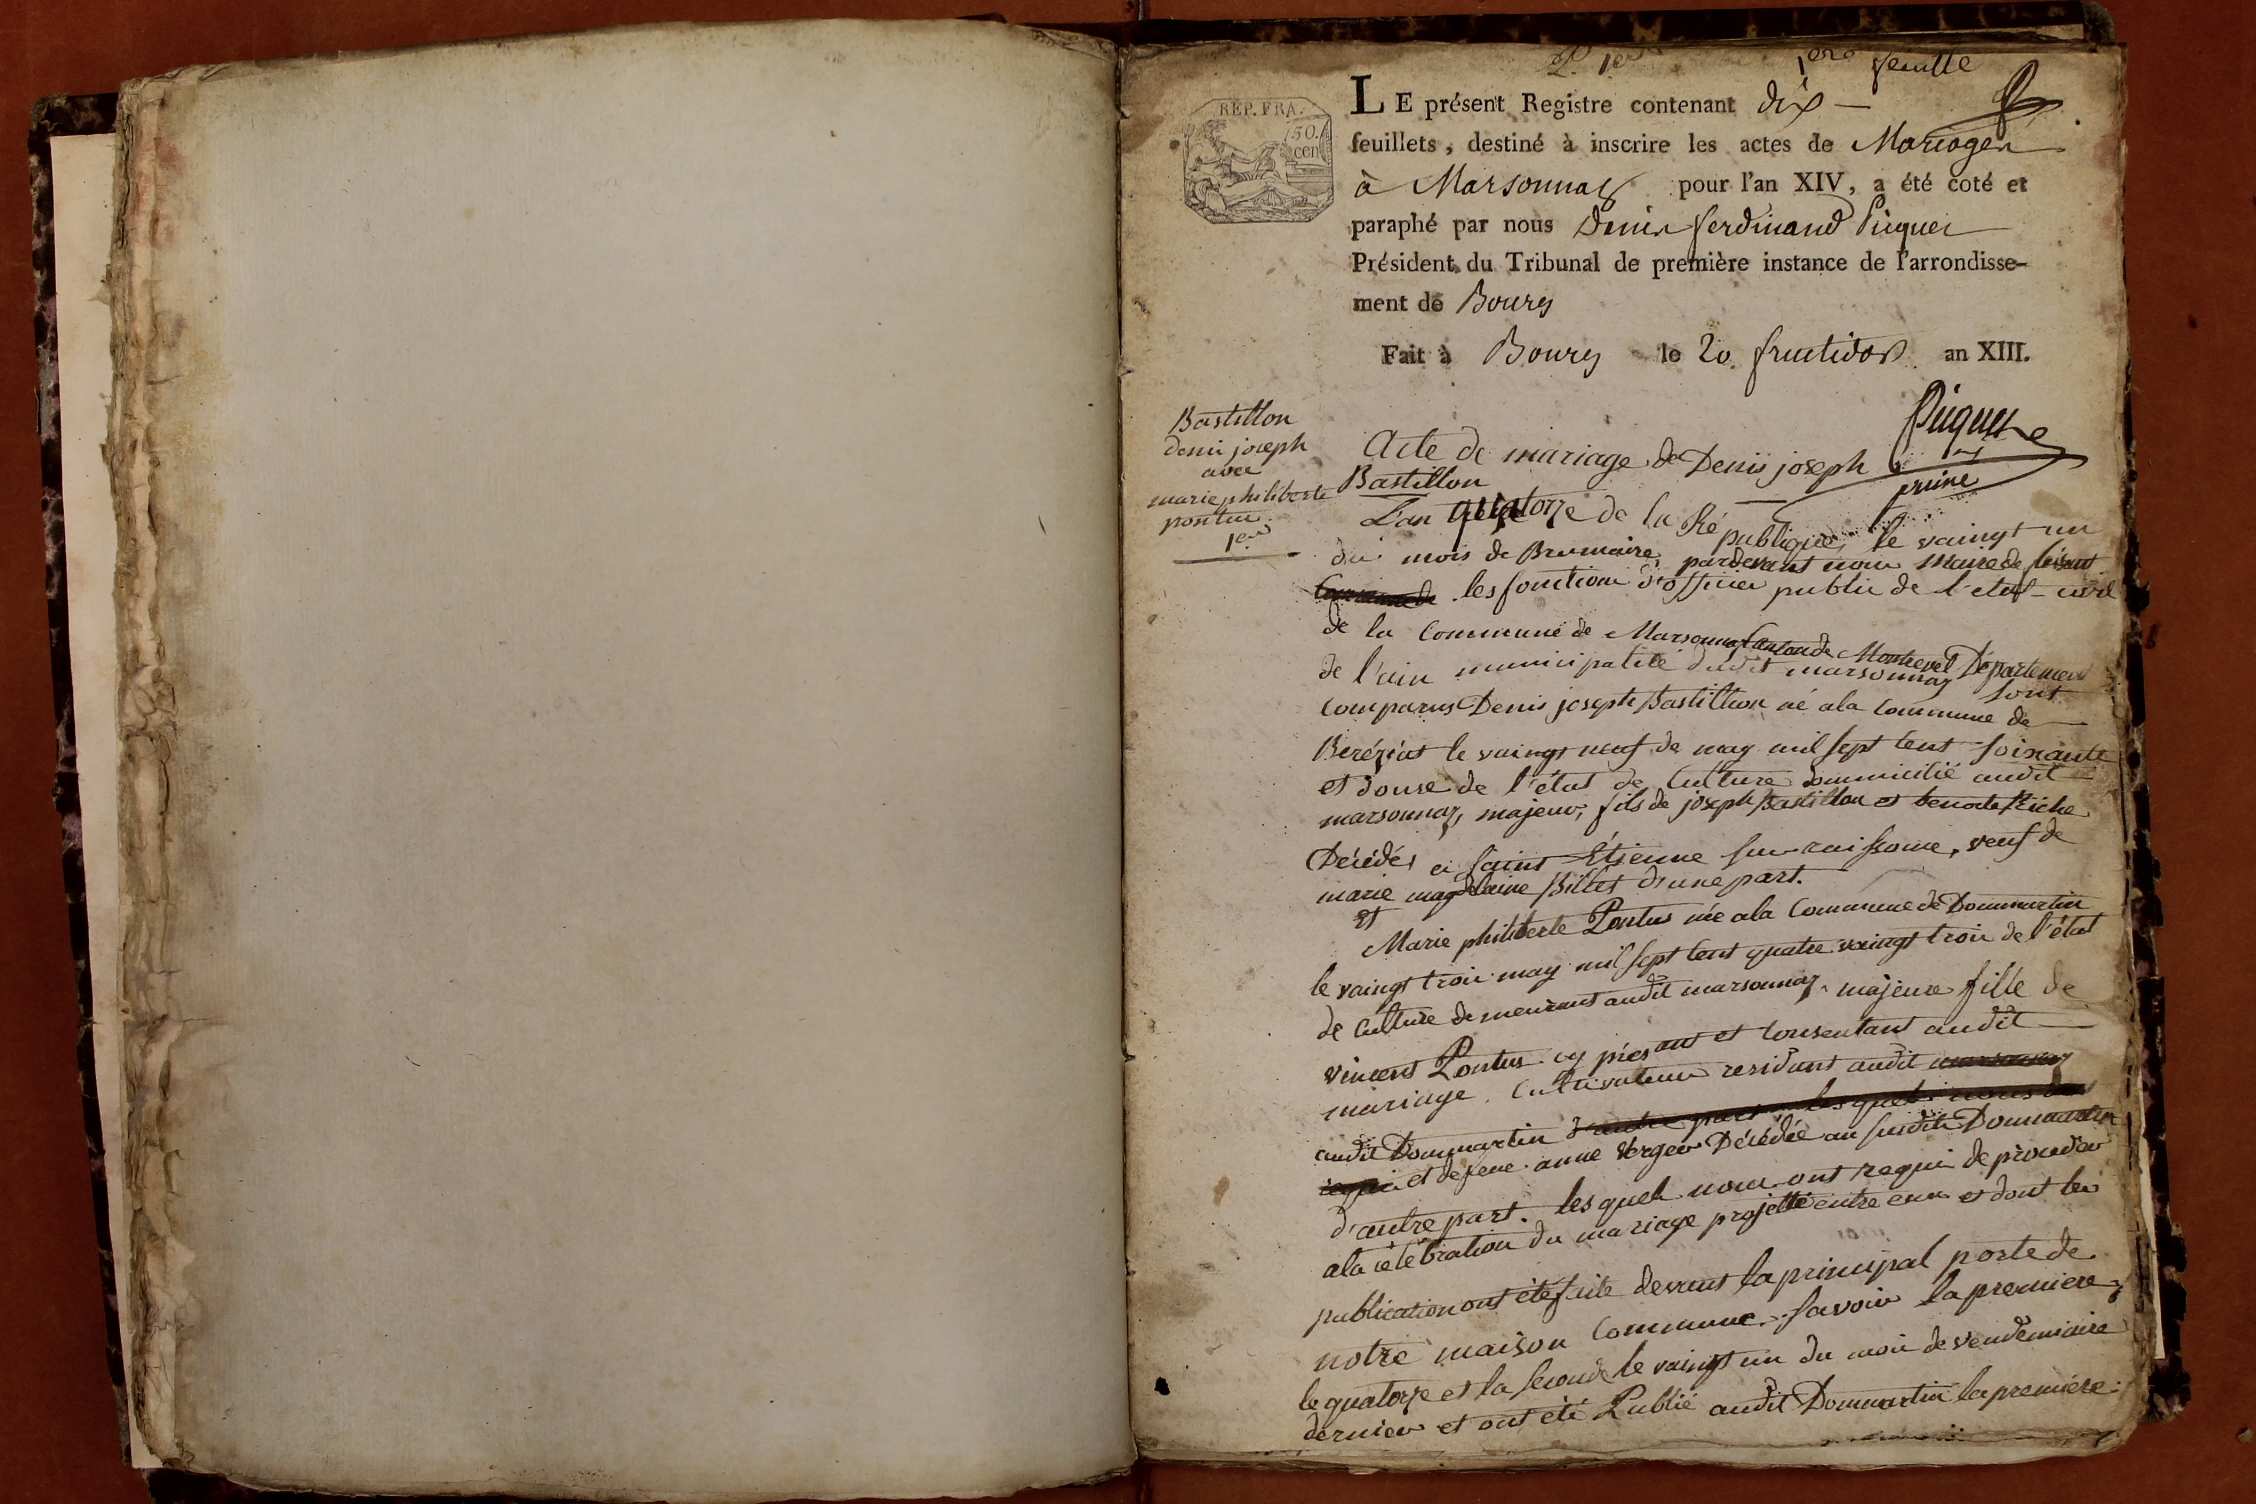 1ere feuille
REP. FRA.
50.
cen
LE présent Registre contenant dix
feuillets, destiné à inscrire les actes de Mariages
à Marsonnay pour l'an XIV, a été coté et
paraphé par nous Denis ferdinand Piquet
Président du Tribunal de première instance de l'arrondisse-
ment de Bourg
Fait à Bourg le 20 fructidor an XIII.
Piquet
Bastillon
denis joseph
avec
marie philiberte
pontus
1er
Acte de mariage de Denis joseph
Bastillon
L'an quatorze de la République, le vaingt un
du mois de Brumaire pardevant nous Maire de faisant
les fonctions d'officier public de l'etat civil
de la Commune de Marsonnay Canton de Montrevel Département
de l'ain municipalité dudit marsonnay sont
comparus Denis joseph Bastillon né a la Commune de
Beréziat le vaingt neuf de may mil sept cent soixante
et douse de l'état de Culture dommicilié audit
marsonnay, majeur, fils de joseph Bastillon et benoite Riche
Décédés a Saint Etienne sur raissouse, veuf de
marie magdelaine Billet d'une part.
et
Marie philiberte Pontus née a la Commune de Dommartin
le vaingt trois may mil sept cent quatre vaingt trois de l'état
de Culture demeurant audit marsonnay. majeure fille de
vincent Pontus cy présant et consentant audit
mariage. Cultivateur residant audit marsonnay
audit Dommartin d'autre part lesquels nous
et de feue anne Verger Décédée au susdit Dommartin
d'autre part. lesquels nous ont requis de proceder
a la célébration du mariage projetté entre eux et dont les
publication ont été faite devant la principal porte de
notre maison Commune. Savoir la premiere
le quatorze et la seconde le vaingt un du mois de vendémiaire
dernier et ont été Publié audit Dommartin la premiere